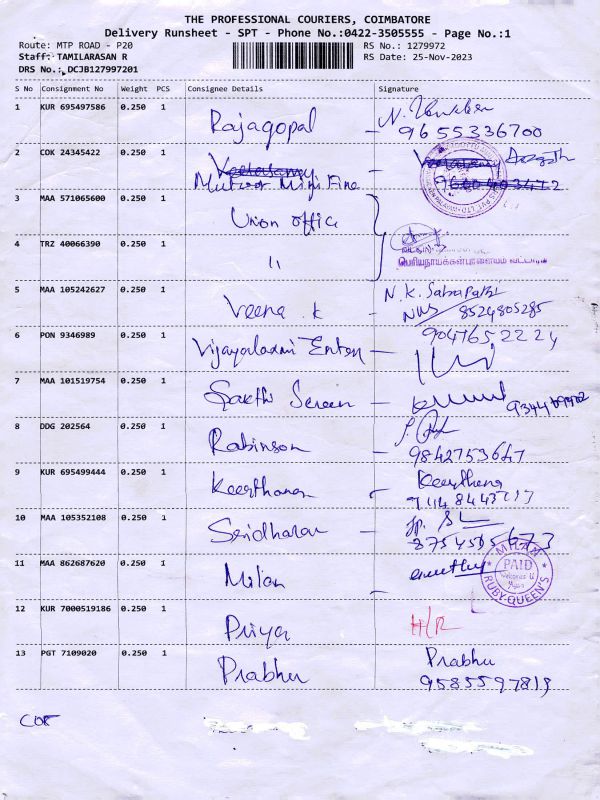 THE PROFESSIONAL COURIERS, COIMBATORE
Delivery Runsheet - SPT - Phone No.:0422-3505555 - Page No.:1
Route: MTP ROAD - P20
RS No.: 1279972
Staff: TAMILARASAN R
RS Date: 25-Nov-2023
DRS No.: DCJB127997201
S No Consignment No Weight PCS Consignee Details Signature
1 KUR 695497586 0.250 1 Rajagopal
9655336700
2 COK 24345422 0.250 1
3 MAA 571065600 0.250 1 Union office
4 TRZ 40066390 0.250 1 "
பெரியநாயக்கன்பாளையம் வட்டாரம்
5 MAA 105242627 0.250 1 Veena K N.K. Sabapathi
8524805285
6 PON 9346989 0.250 1 Vijayalaxmi Enter 9047652224
7 MAA 101519754 0.250 1 Sakthi Screen
8 DDG 202564 0.250 1 Rabinson
9842753647
9 KUR 695499444 0.250 1 Keerthana Keerthana
10 MAA 105352108 0.250 1 Sridharan
11 MAA 862687620 0.250 1 Milan
MILAN
PAID
RUBY QUEEN'S
12 KUR 7000519186 0.250 1 Priya H/R
13 PGT 7109020 0.250 1 Prabhu Prabhu
9585597819